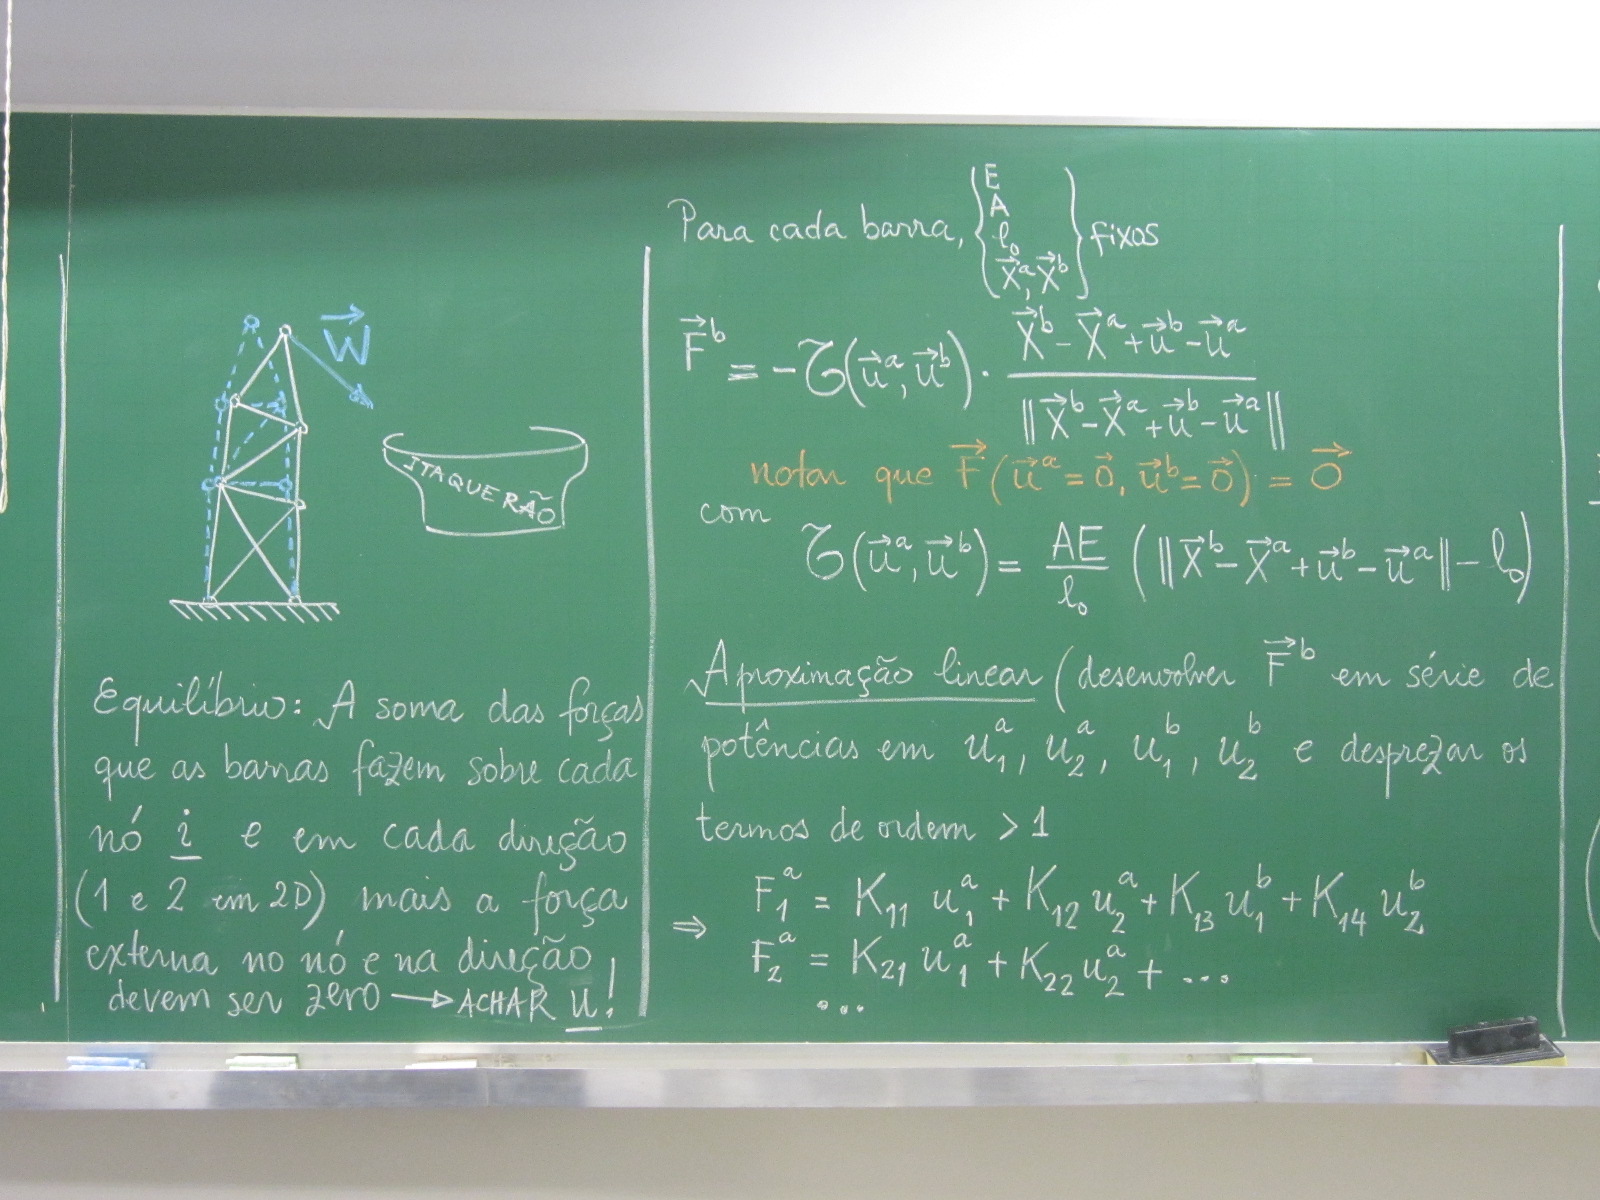 W⃗
ITAQUERÃO
Equilíbrio: A soma das forças
que as barras fazem sobre cada
nó i e em cada direção
(1 e 2 em 2D) mais a força
externa no nó e na direção
devem ser zero → ACHAR U!
Para cada barra, { E A l₀ X⃗ᵃ, X⃗ᵇ } fixos
F⃗ᵇ = -𝒯(u⃗ᵃ, u⃗ᵇ) · (X⃗ᵇ - X⃗ᵃ + u⃗ᵇ - u⃗ᵃ) / ‖X⃗ᵇ - X⃗ᵃ + u⃗ᵇ - u⃗ᵃ‖
notar que F⃗(u⃗ᵃ = 0⃗, u⃗ᵇ = 0⃗) = 0⃗
com
𝒯(u⃗ᵃ, u⃗ᵇ) = AE/l₀ (‖X⃗ᵇ - X⃗ᵃ + u⃗ᵇ - u⃗ᵃ‖ - l₀)
Aproximação linear (desenvolver F⃗ᵇ em série de
potências em u₁ᵃ, u₂ᵃ, u₁ᵇ, u₂ᵇ e desprezar os
termos de ordem > 1
⇒ F₁ᵃ = K₁₁ u₁ᵃ + K₁₂ u₂ᵃ + K₁₃ u₁ᵇ + K₁₄ u₂ᵇ
F₂ᵃ = K₂₁ u₁ᵃ + K₂₂ u₂ᵃ + ...
...